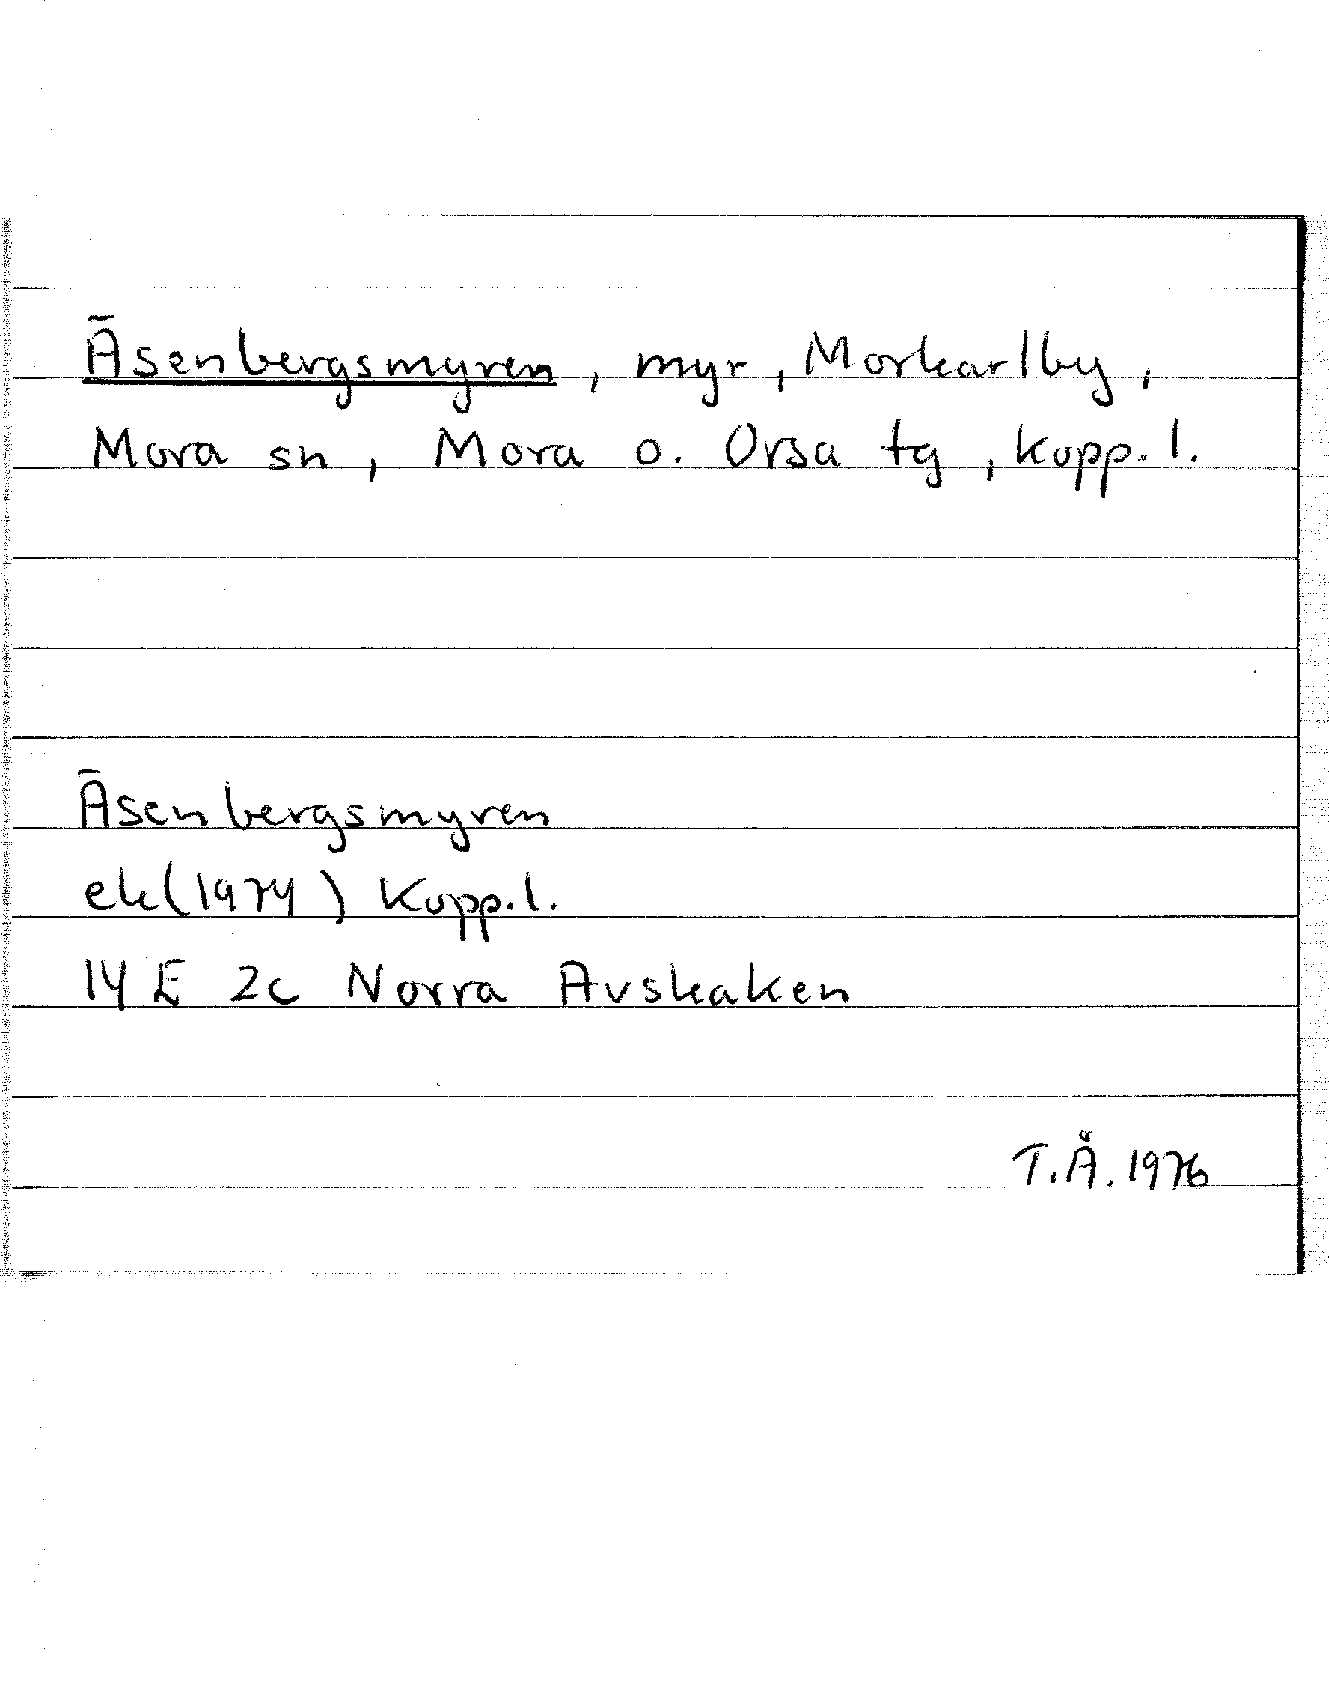 Äsenbergsmyren, myr, Morkarlby,
Mora sn, Mora o. Orsa tg, Kopp. l.
Äsenbergsmyren
ek(1974) Kopp.l.
14 E 2c Norra Avskaken
T.Å. 1976